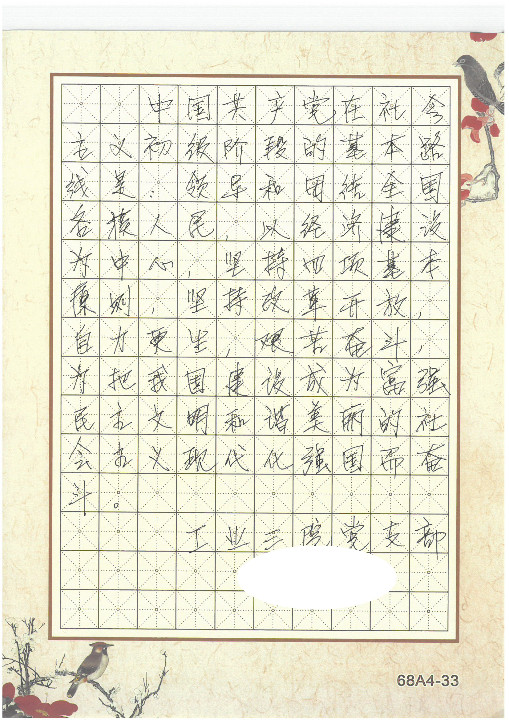 中国共产党在社会
主义初级阶段的基本路
线是：领导和团结全国
各族人民，以经济建设
为中心，坚持四项基本
原则，坚持改革开放，
自力更生，艰苦奋斗，
为把我国建设成为富强
民主文明和谐美丽的社
会主义现代化强国而奋
斗。
工业三院党支部
68A4-33